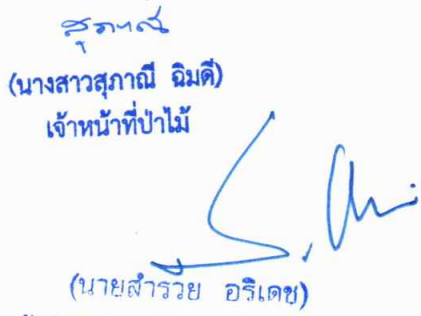 สุภาณี
(นางสาวสุภาณี ฉิมดี)
เจ้าหน้าที่ป่าไม้
(นายสำรวย อริเดช)